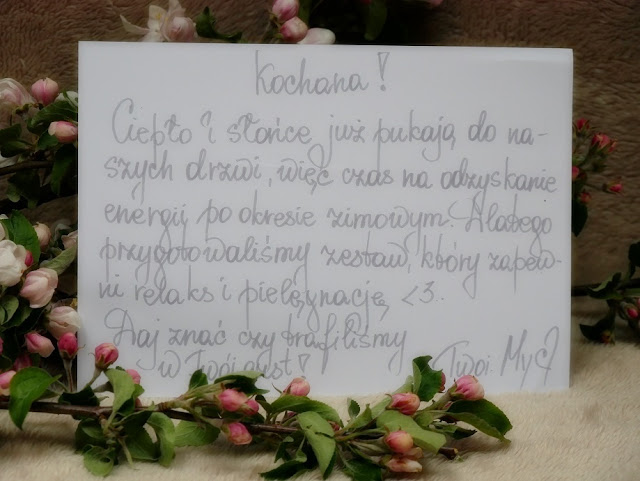 Kochana!
Ciepło i słońce już pukają do na-
szych drzwi, więc czas na odzyskanie
energii po okresie zimowym. Dlatego
przygotowaliśmy zestaw, który zapew-
ni relaks i pielęgnację <3.
Daj znać czy trafiliśmy
w Twój gust! Twoi